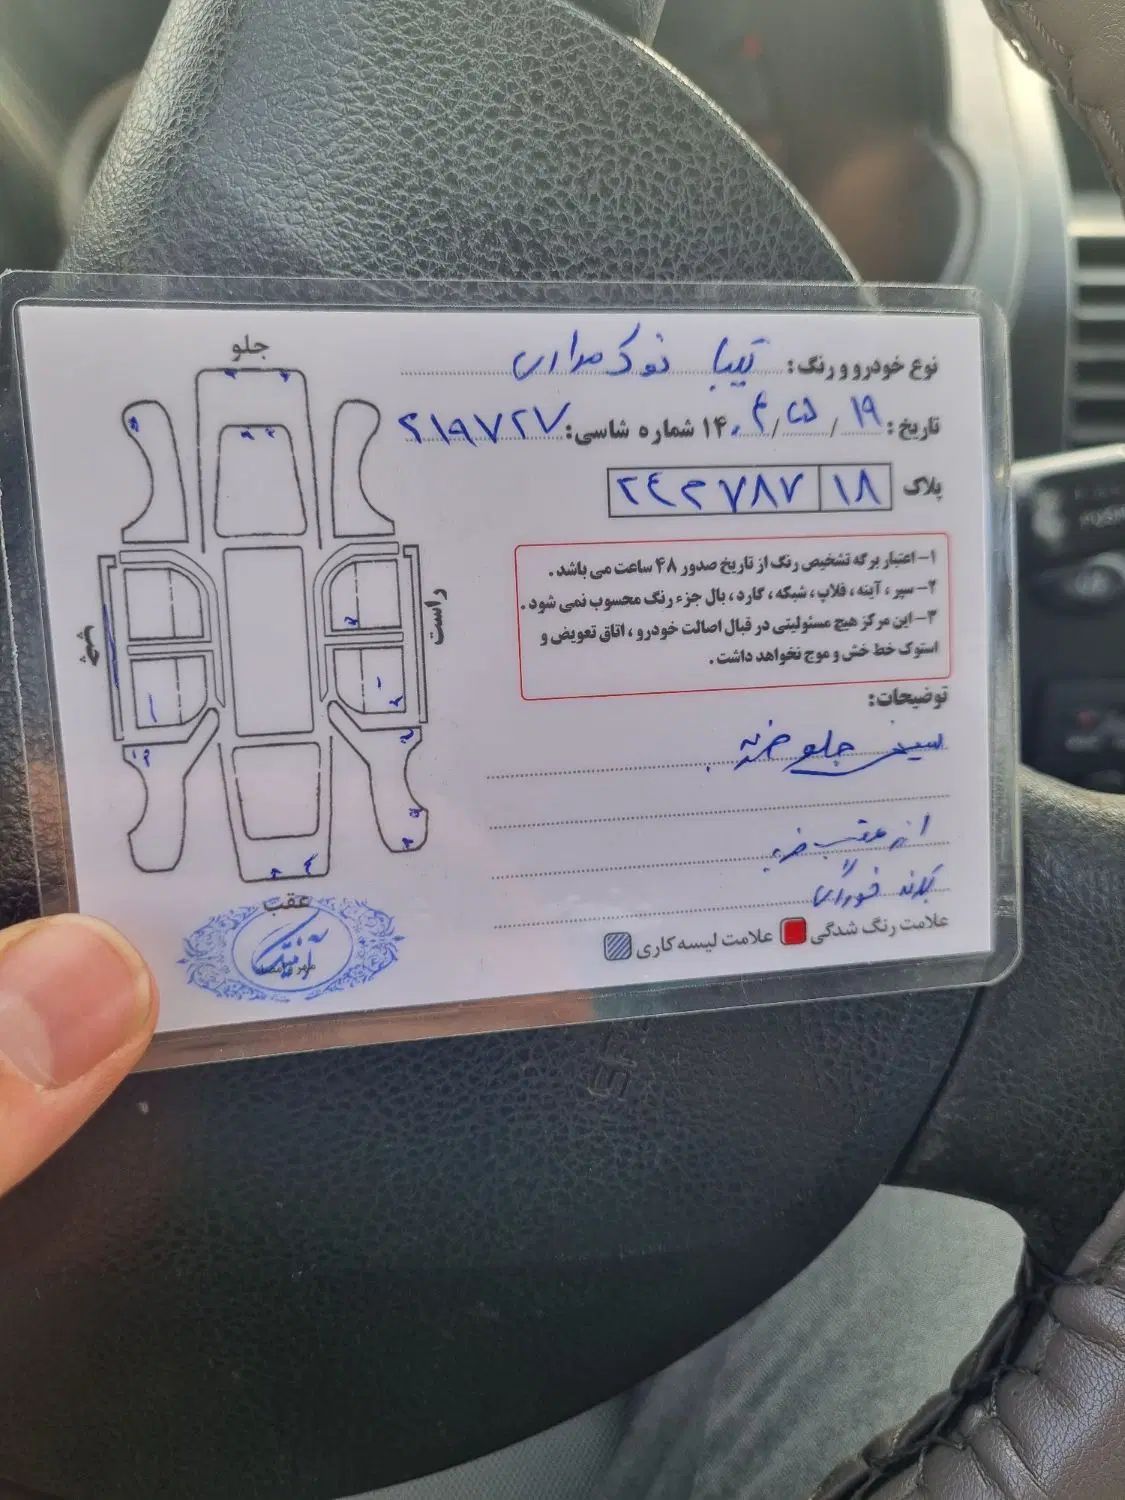 جلو
نوع خودرو و رنگ: تیبا نوک مدادی
تاریخ: ۱۹ / ۵ / ۱۴۰۴ شماره شاسی:
پلاک ۱۸
۱- اعتبار برگه تشخیص رنگ از تاریخ صدور ۴۸ ساعت می باشد.
۲- سپر، آینه، قلاپ، شبکه، گارد، بال جزء رنگ محسوب نمی شود.
۳- این مرکز هیچ مسئولیتی در قبال اصالت خودرو، اتاق تعویض و
استوک خط خش و موج نخواهد داشت.
راست
چپ
توضیحات:
سینی جلو ضربه
عقب ضربه
خوردگی
علامت رنگ شدگی علامت لیسه کاری
عقب